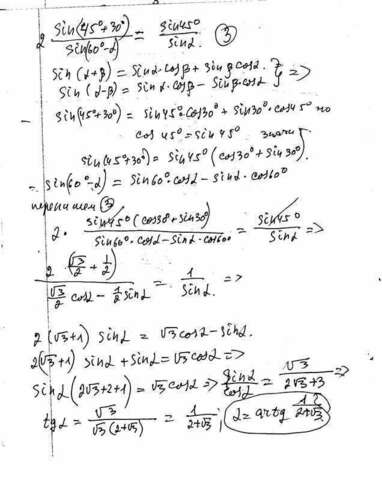 2 sin(45°+30°)/sin(60°-α) = sin45°/sinα. (3)
sin(α+β) = sinα·cosβ + sinβ cosα. } =>
sin(α-β) = sinα·cosβ - sinβ·cosα
sin(45°+30°) = sin45°·cos30° + sin30°·cos45° но
cos45° = sin45° значит
sin(45°+30°) = sin45°(cos30°+sin30°).
sin(60°-α) = sin60°·cosα - sinα·cos60°
перепишем (3)
2· sin45°(cos30°+sin30°)/(sin60°·cosα - sinα·cos60°) = sin45°/sinα =>
2(√3/2 + 1/2)/(√3/2 cosα - 1/2 sinα) = 1/sinα. =>
2(√3+1) sinα = √3cosα - sinα.
2(√3+1) sinα + sinα = √3cosα =>
sinα(2√3+2+1) = √3cosα => sinα/cosα = √3/(2√3+3) =>
tgα = √3/(√3(2+√3)) = 1/(2+√3); α = artg 1/(2+√3)